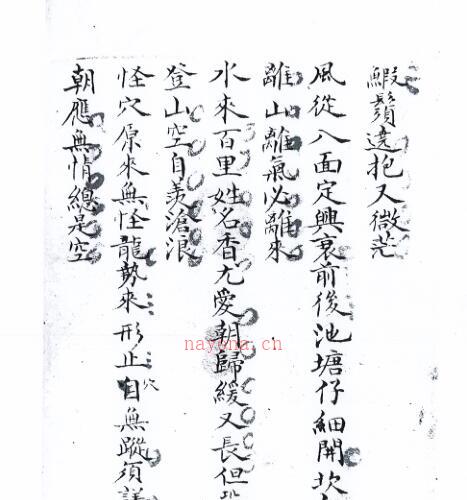 鰕鬚遶抱又微茫
風從八面定興衰前後池塘仔細開坎
離山離氣必離來
水來百里姓名香尤愛朝歸緩又長但
登山空自羡滄浪
怪穴原來無怪龍勢來形止自無蹤須
穴
朝應無情總是空
nayona.cn